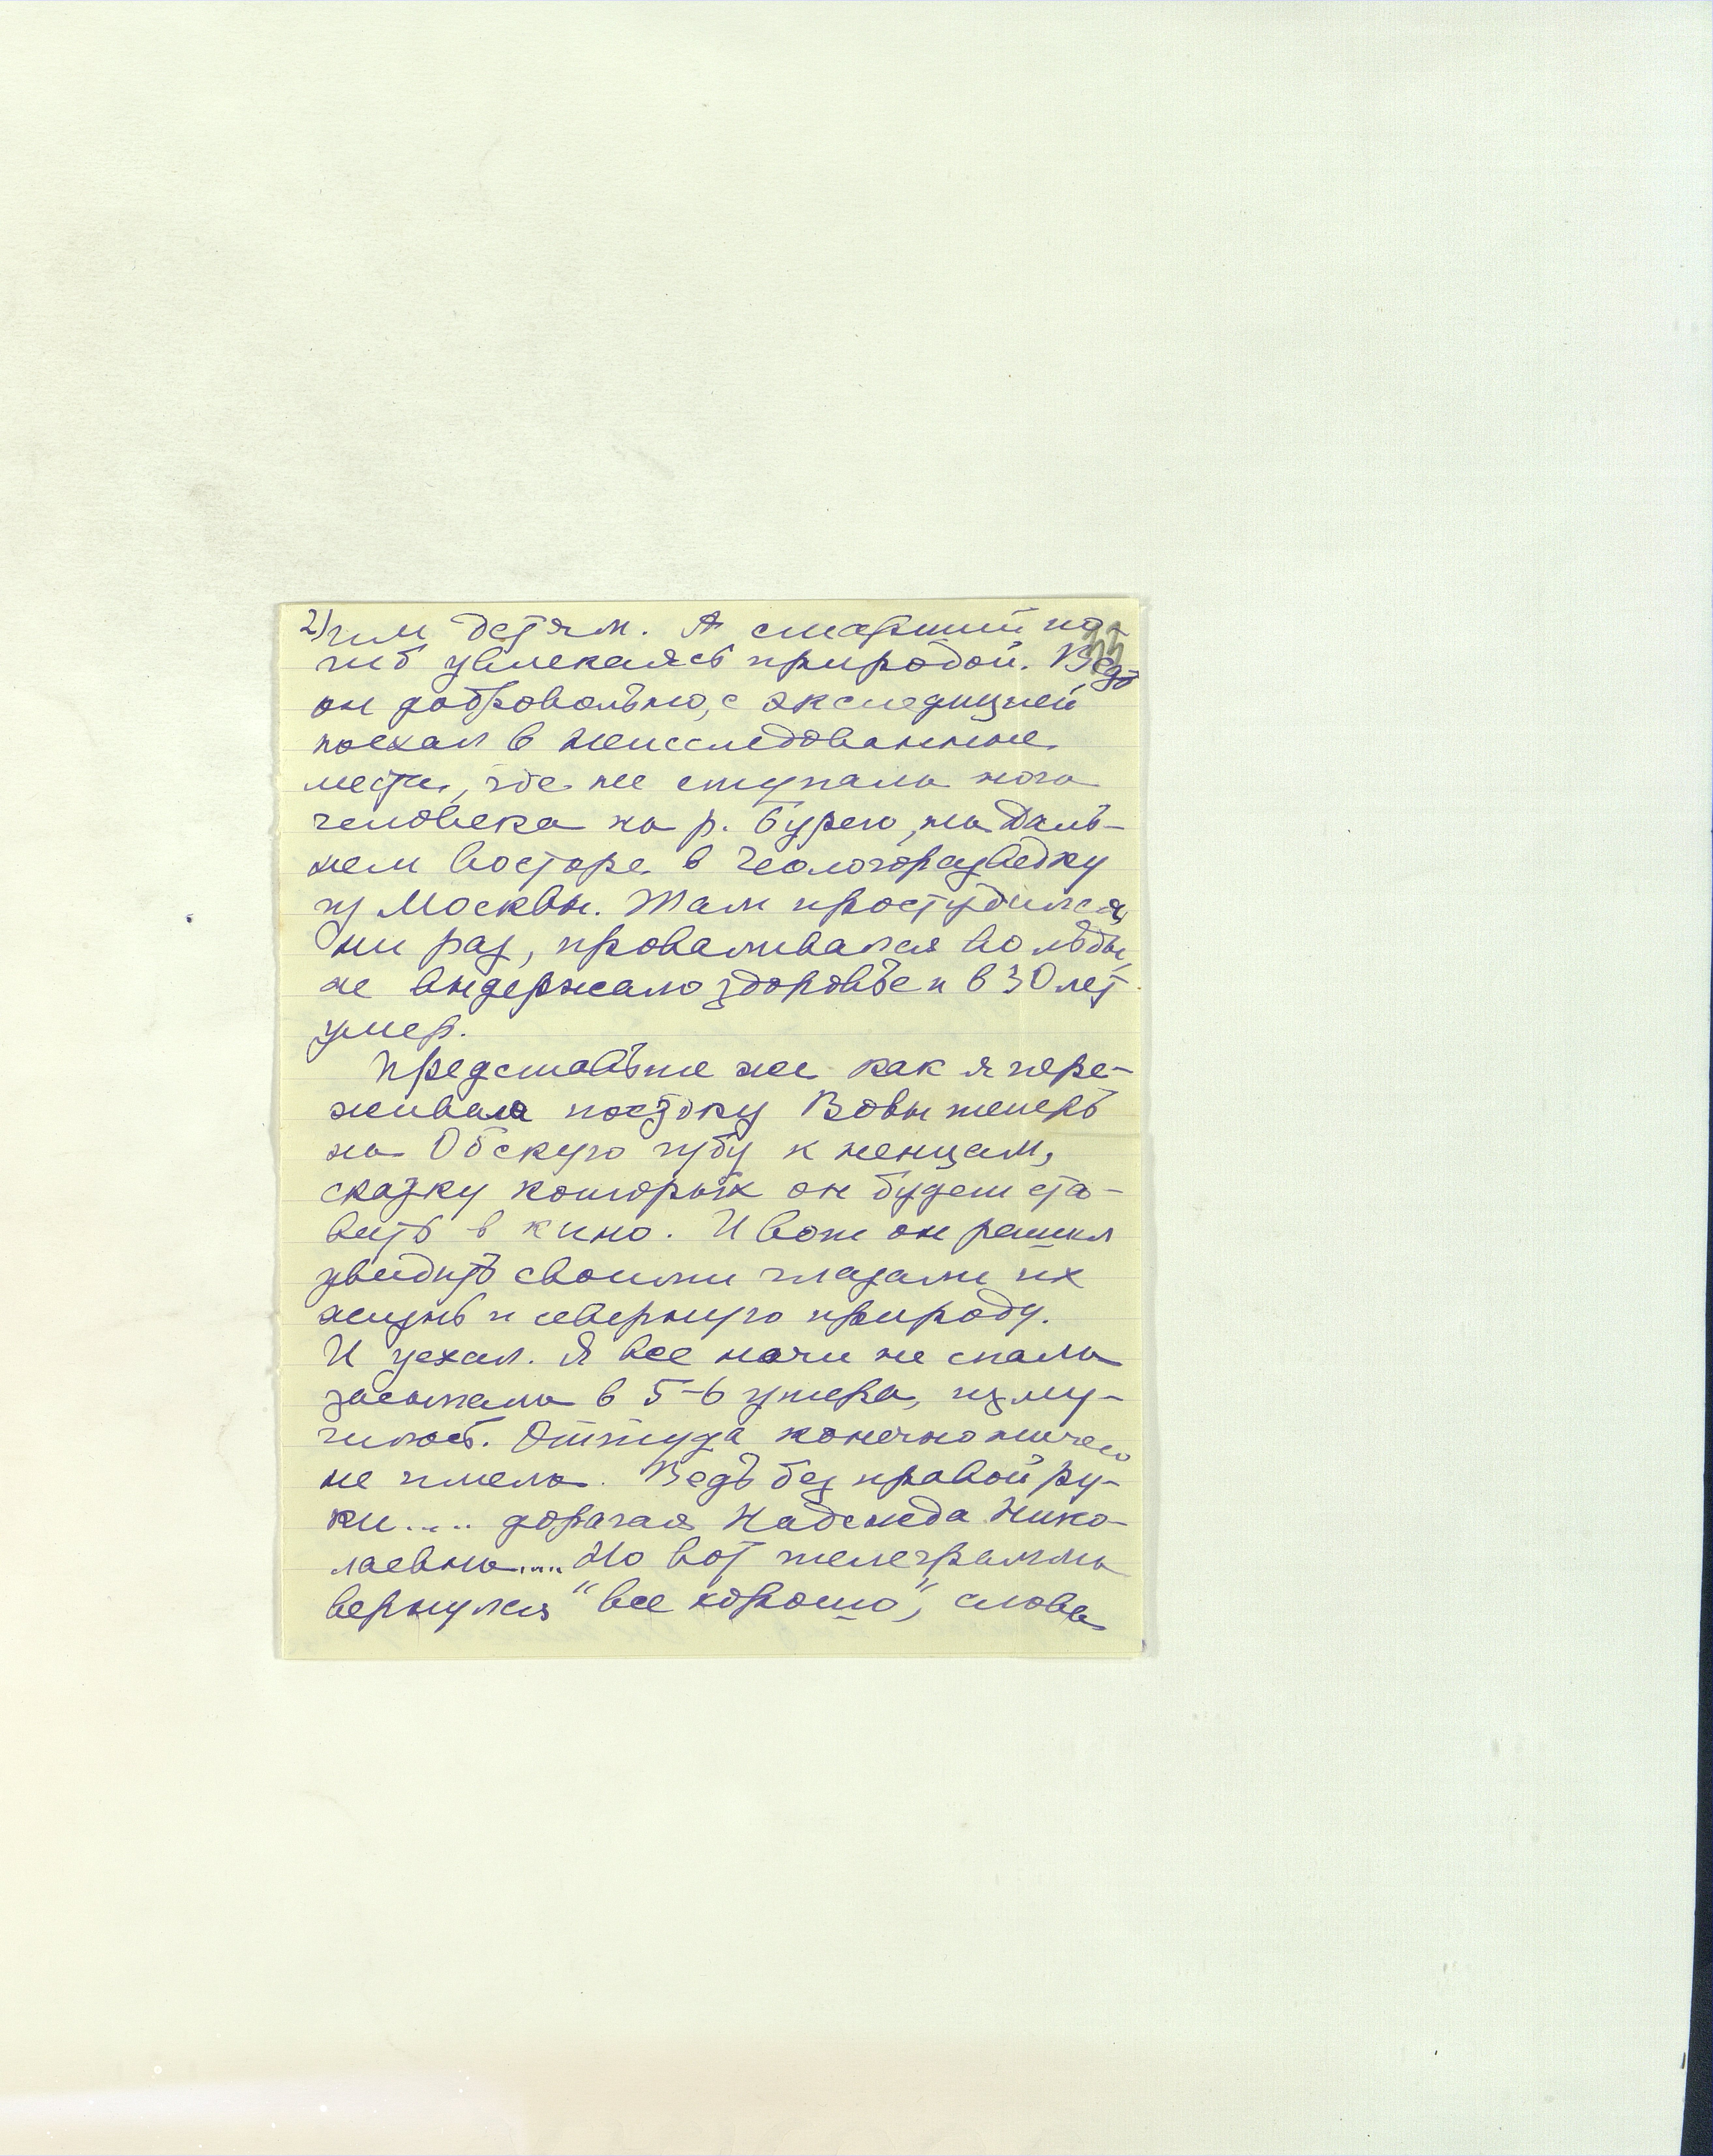 2) гим детям. А старший по-
гиб увлекаясь природой. Ведь
он добровольно, с экспедицией
поехал в неисследованные
места, где не ступала нога
человека на р. Бурею, на Даль-
нем Востоке в Геологоразведку
из Москвы. Там простудился,
ни раз, проваливался во льды,
не выдержало здоровье и в 30 лет
умер.
Представьте же как я пере-
живала поездку Вовы теперь
на Обскую губу к ненцам,
сказку которых он будет ста-
вить в кино. И вот он решил
увидить своими глазами их
жизнь и северную природу.
И уехал. Я все ночи не спала
засыпала в 5-6 утера, изму-
чилась. Оттуда конечно ничего
не имела. Ведь без правой ру-
ки..... дорогая Надежда Нико-
лаевна..... Но вот телеграмма
вернулся "все хорошо", слова